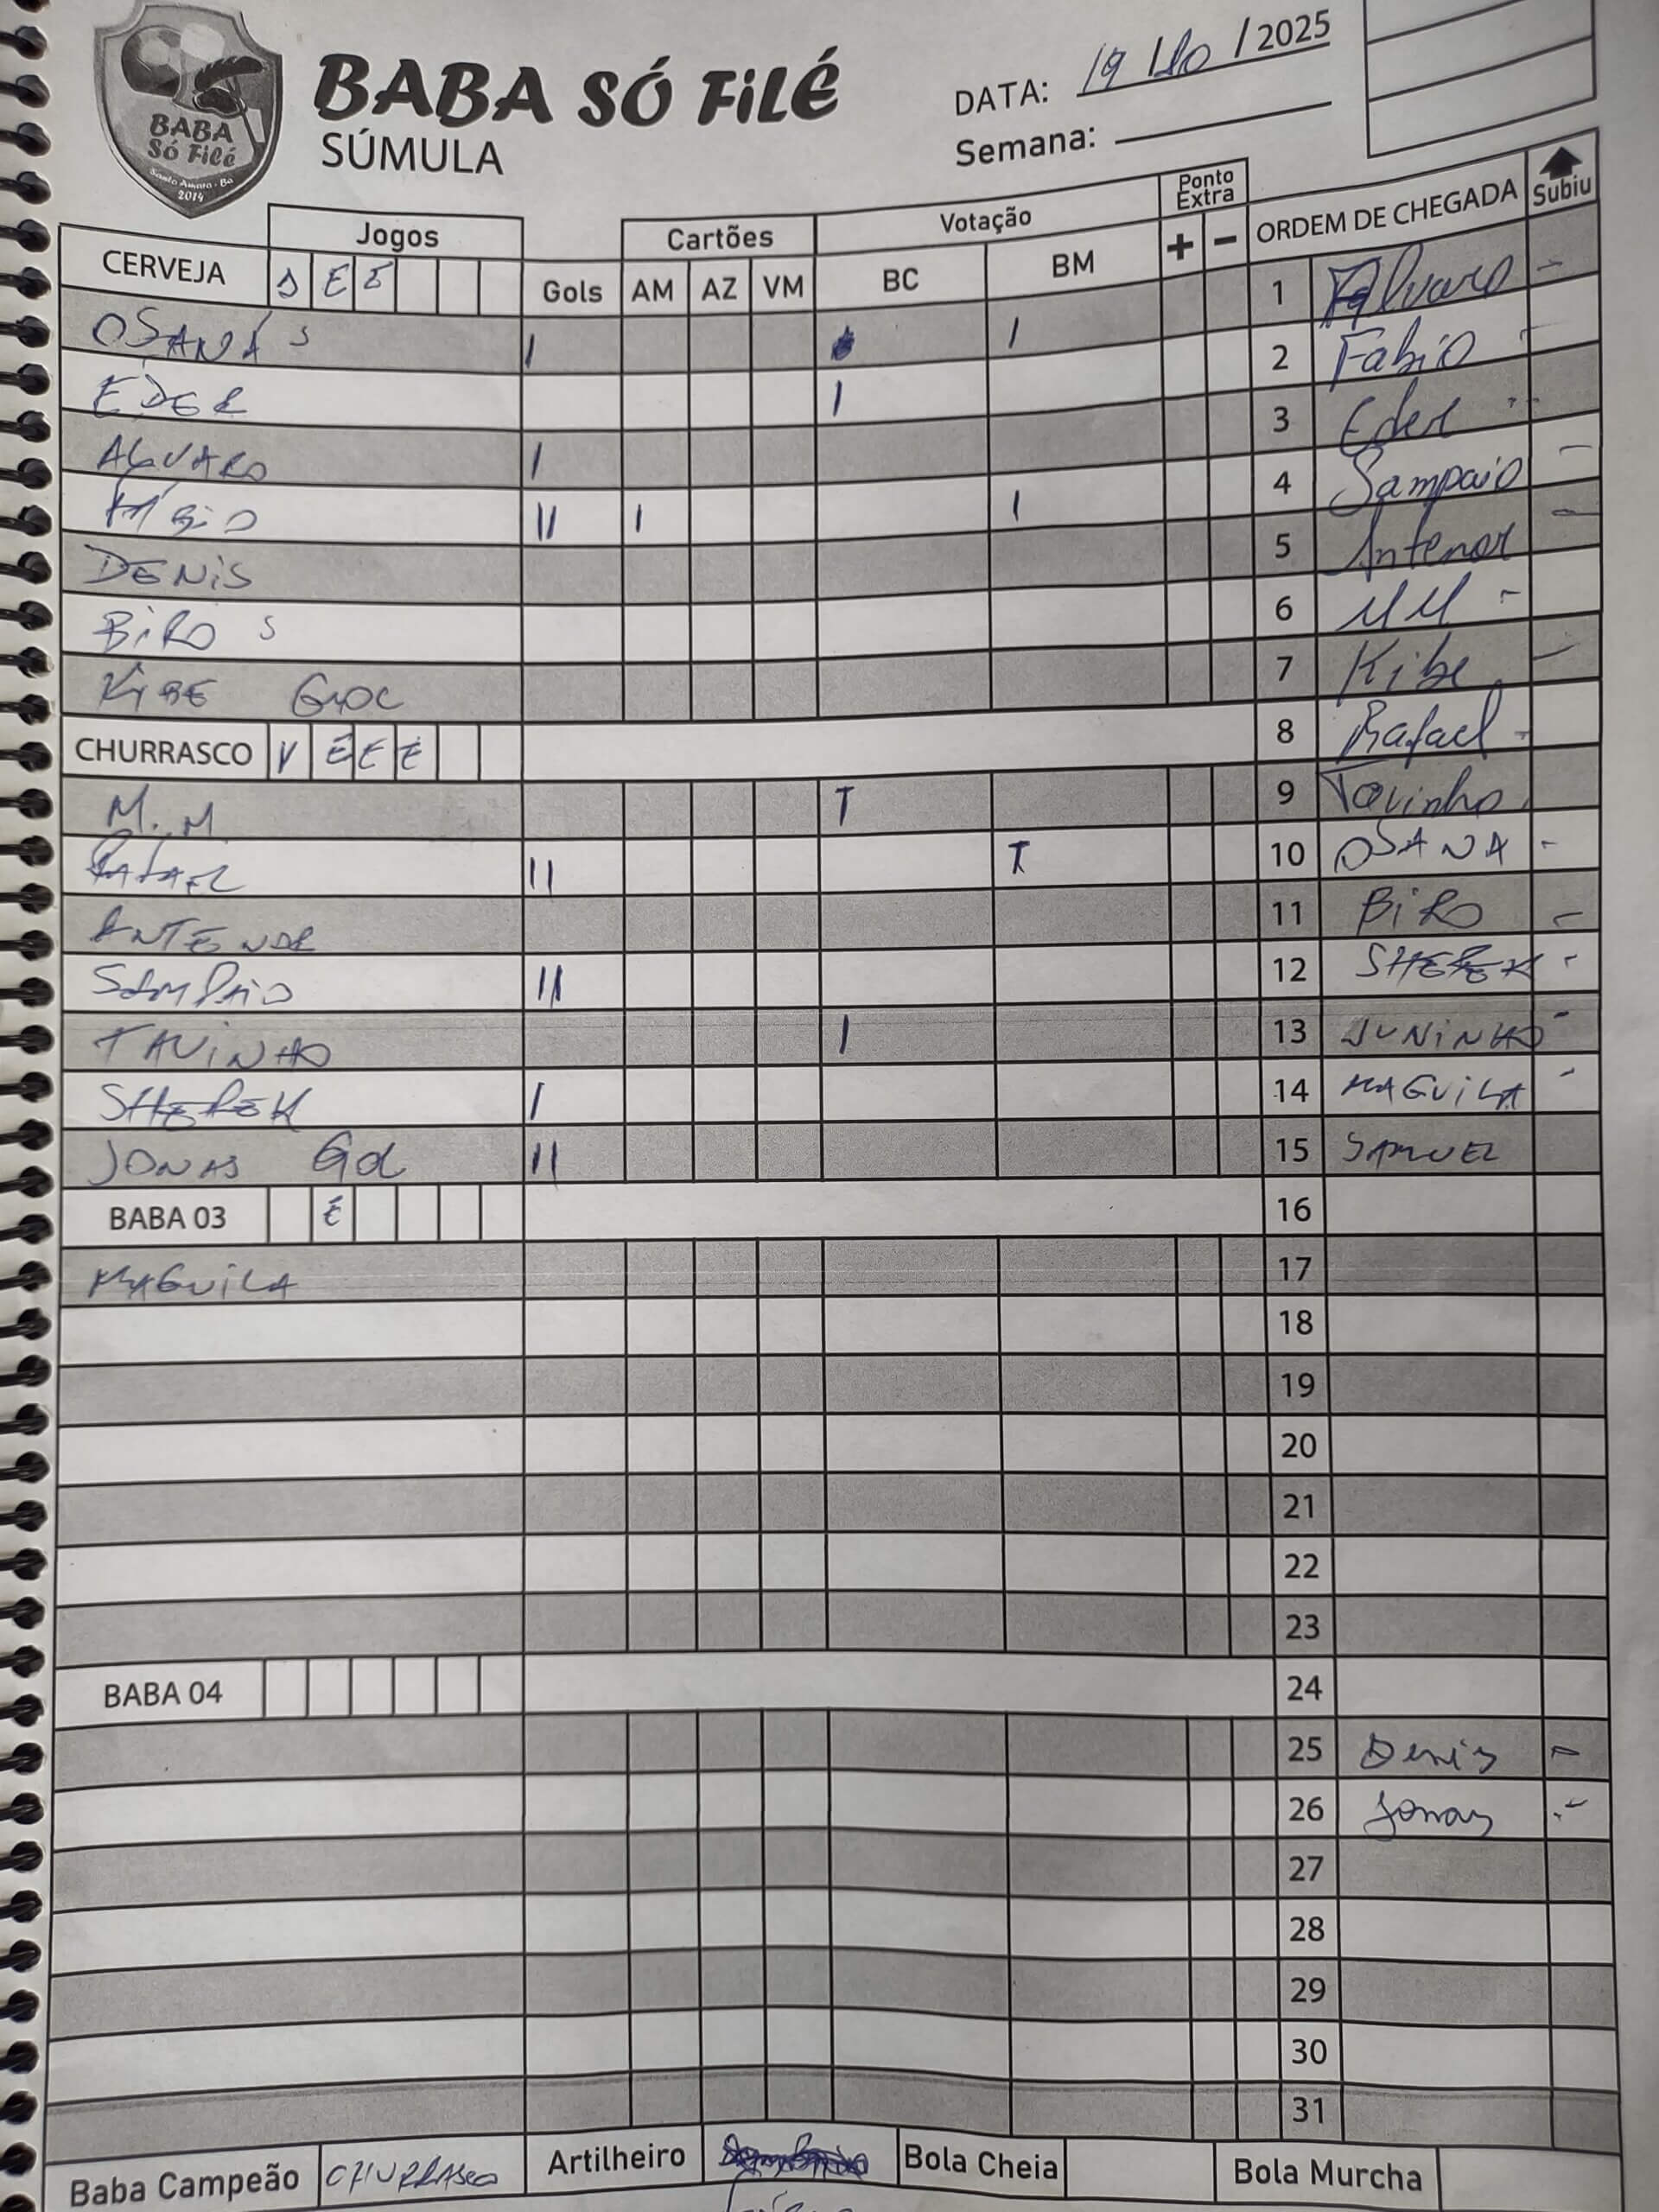 BABA SÓ FILÉ
BABA
Só Filé
Santo Amaro - Ba
2014
SÚMULA
DATA: 19/10/2025
Semana:
Jogos
Cartões
Votação
Ponto Extra
ORDEM DE CHEGADA
Subiu
CERVEJA D E E Gols AM AZ VM BC BM + -
OSANÁ S I I
EDER I
ALVARO I
FÁBIO II I I
DENIS
BIRO S
KIBE GOL
CHURRASCO V E E E
M.M T
RAFAEL II T
ANTENOR
SAMPAIO II
TAVINHO I
SHEREK I
JONAS Gol II
BABA 03 E
MAGUILA
BABA 04
1 Alvaro -
2 Fabio -
3 Eder -
4 Sampaio -
5 Antenor -
6 MM -
7 Kibe -
8 Rafael -
9 Tavinho
10 OSANA -
11 BIRO -
12 SHEREK -
13 JUNINHO -
14 MAGUILA -
15 SAMUEL
16
17
18
19
20
21
22
23
24
25 Denis -
26 Jonas -
27
28
29
30
31
Baba Campeão CHURRASCO Artilheiro Bola Cheia Bola Murcha